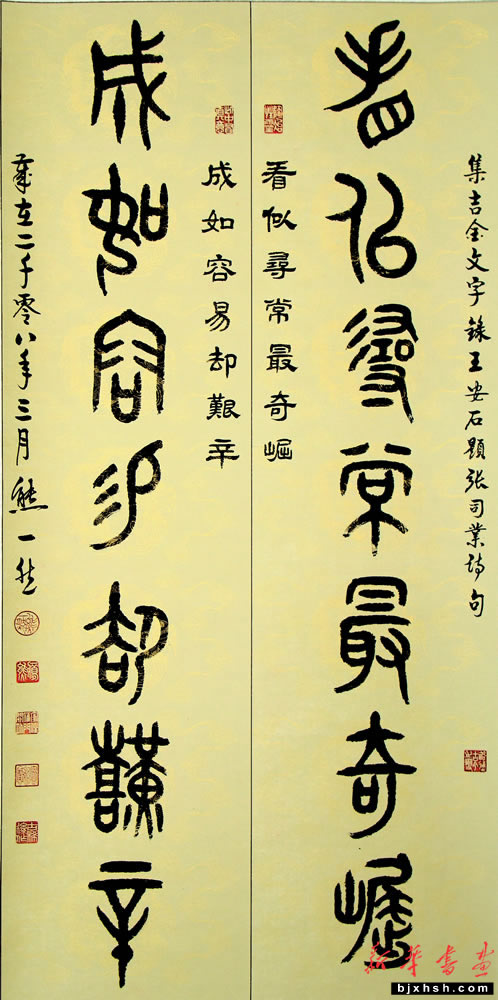 集吉金文字錄王安石題張司業詩句
看似尋常最奇崛
看似尋常最奇崛
成如容易却艱辛
成如容易却艱辛
歲在二千零八年三月熊一然
新華書畫
bjxhsh.com